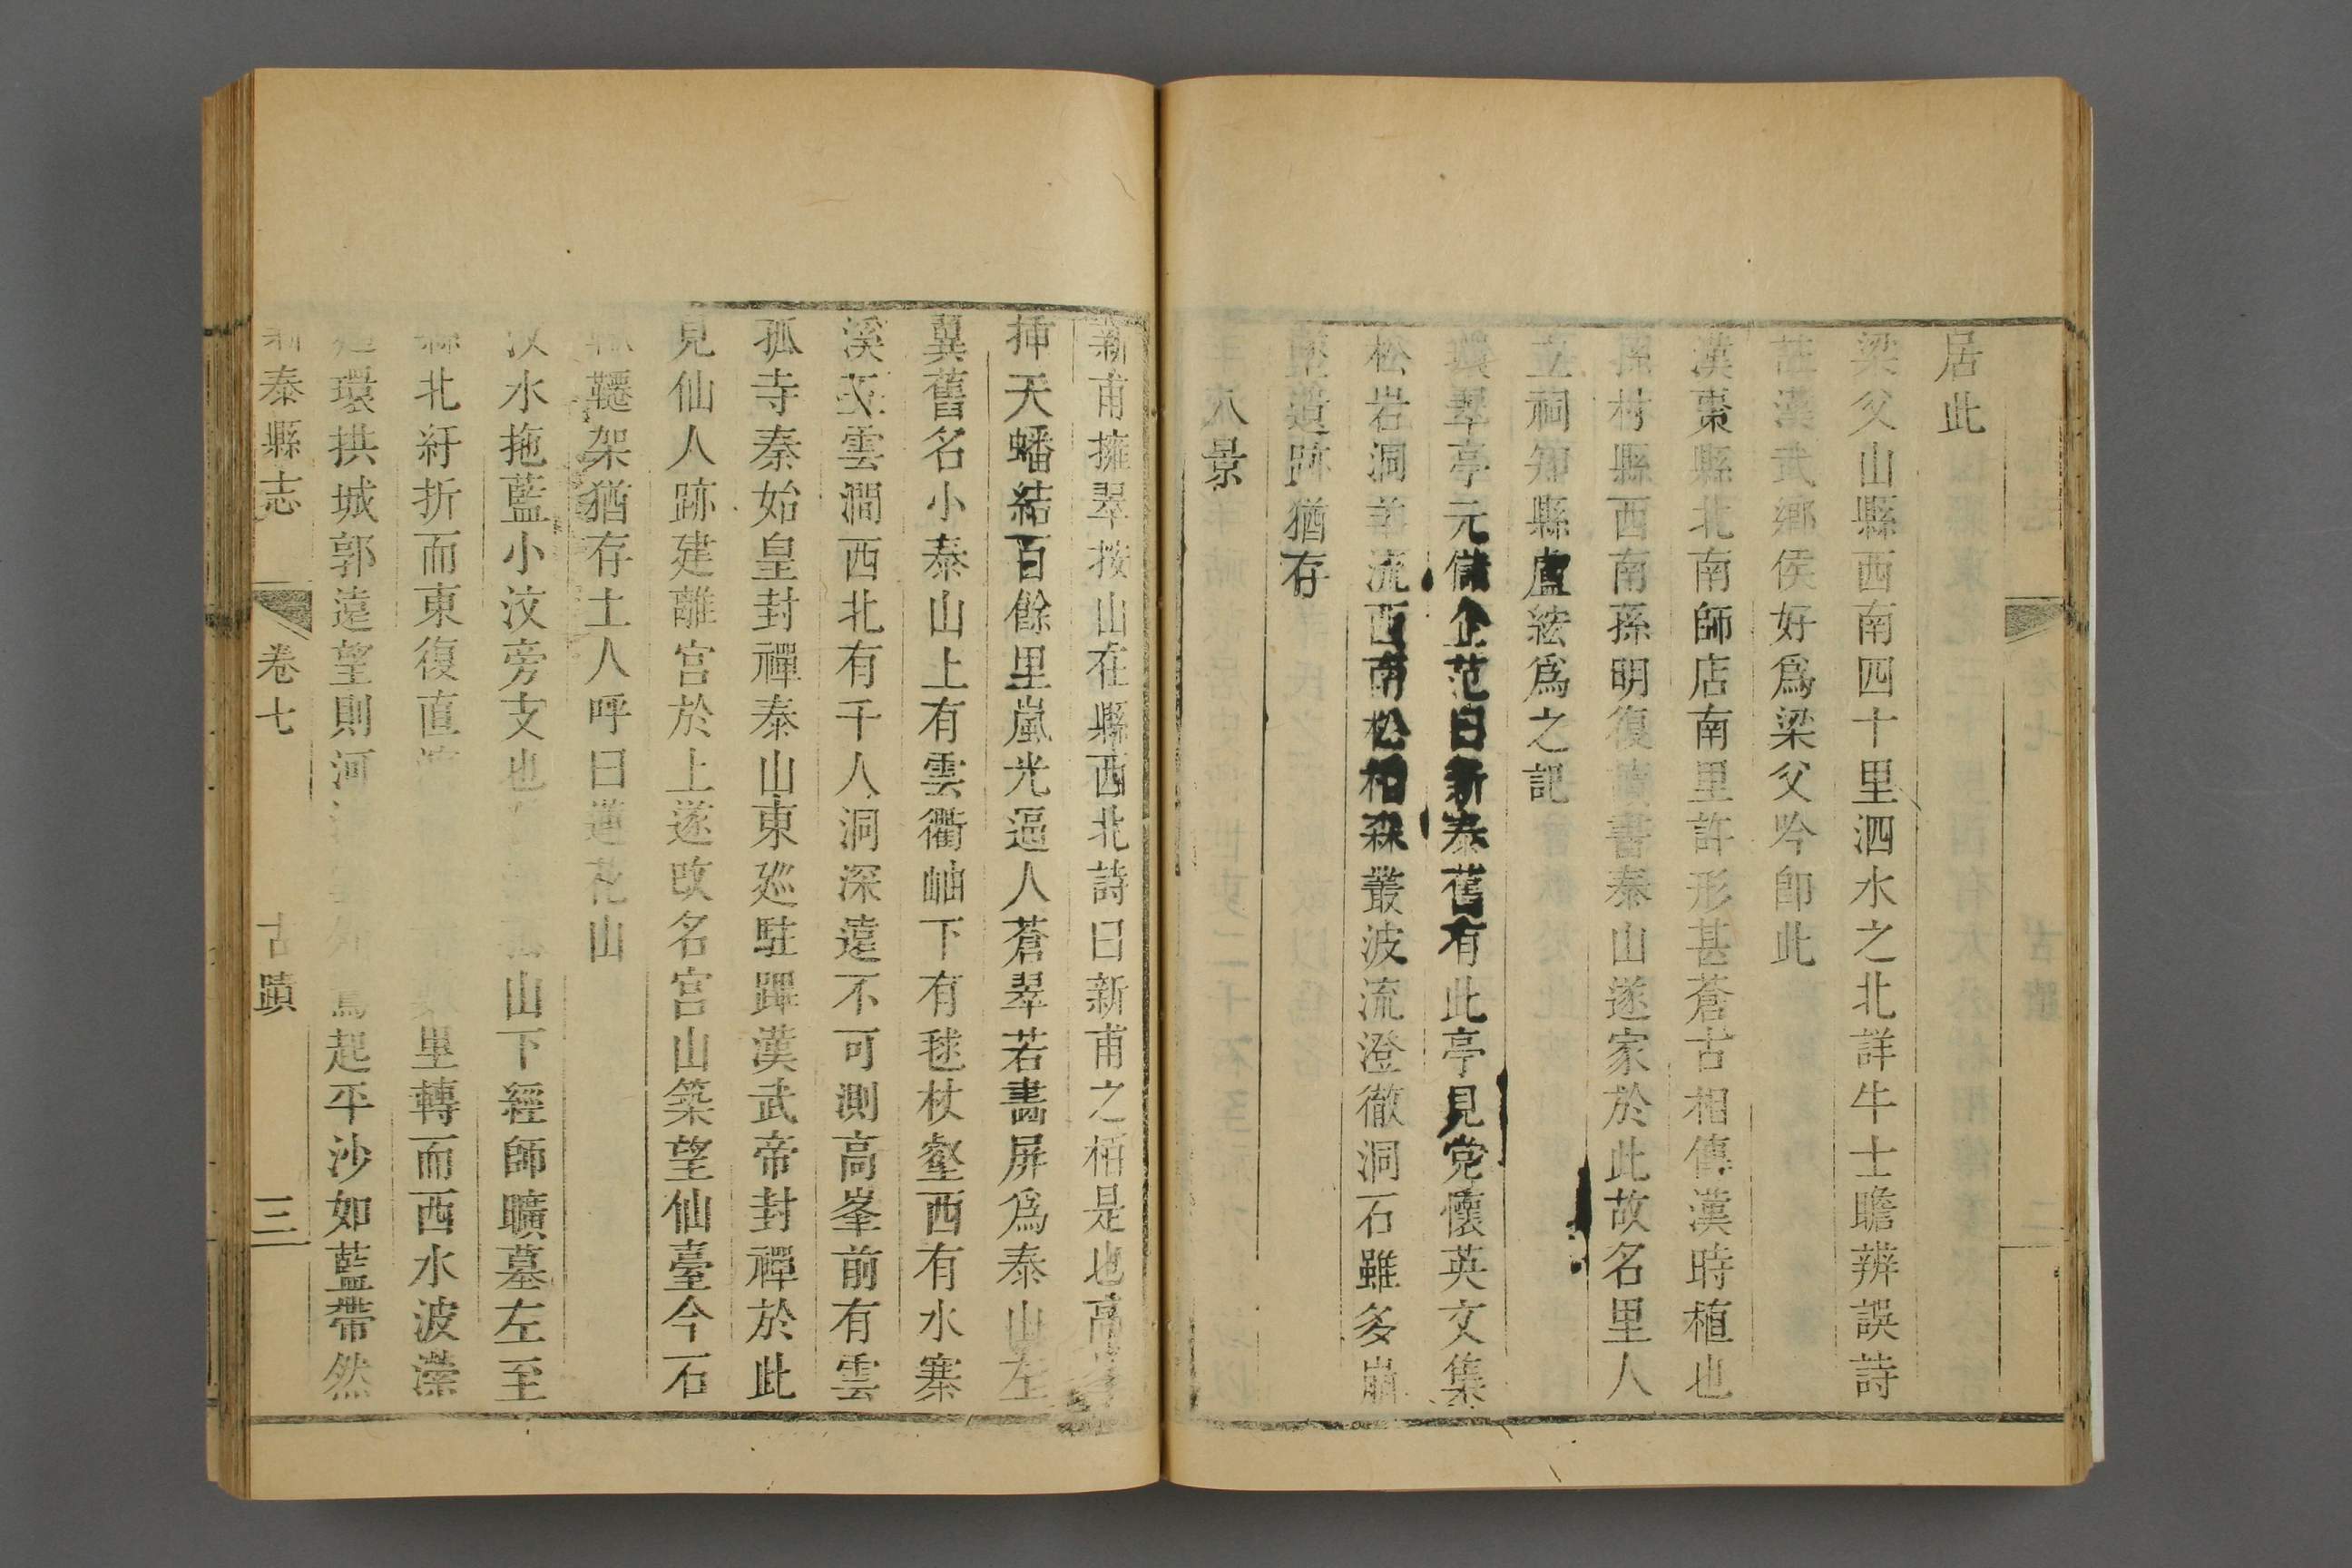 居此
梁父山縣西南四十里泗水之北詳牛士瞻辨誤詩
註漢武鄉侯好爲梁父吟卽此
漢棗縣北南師店南里許形甚蒼古相傳漢時植也
孫村縣西南孫明復讀書泰山遂家於此故名里人
立祠知縣盧綋爲之記
環翠亭元儲企范曰新泰舊有此亭見党懷英文集
松岩洞羊流西南松柏森叢波流澄徹洞石雖多崩
墜遺跡猶存
八景
新甫擁翠按山在縣西北詩曰新甫之栢是也高峯
揷天蟠結百餘里嵐光逼人蒼翠若畵屏爲泰山左
翼舊名小泰山上有雲衢岫下有毬杖壑西有水寨
溪又雲澗西北有千人洞深遠不可測高峯前有雲
孤寺秦始皇封禪泰山東廵駐蹕漢武帝封禪於此
見仙人跡建離宮於上遂改名宮山築望仙臺今石
鞦韆架猶存土人呼曰蓮花山
汶水拖藍小汶旁支也 山下經師曠墓左至
縣北紆折而東復直 里轉而西水波瀠
廻環拱城郭遠望則河 起平沙如藍帶然
新泰縣志 卷七 古蹟 三